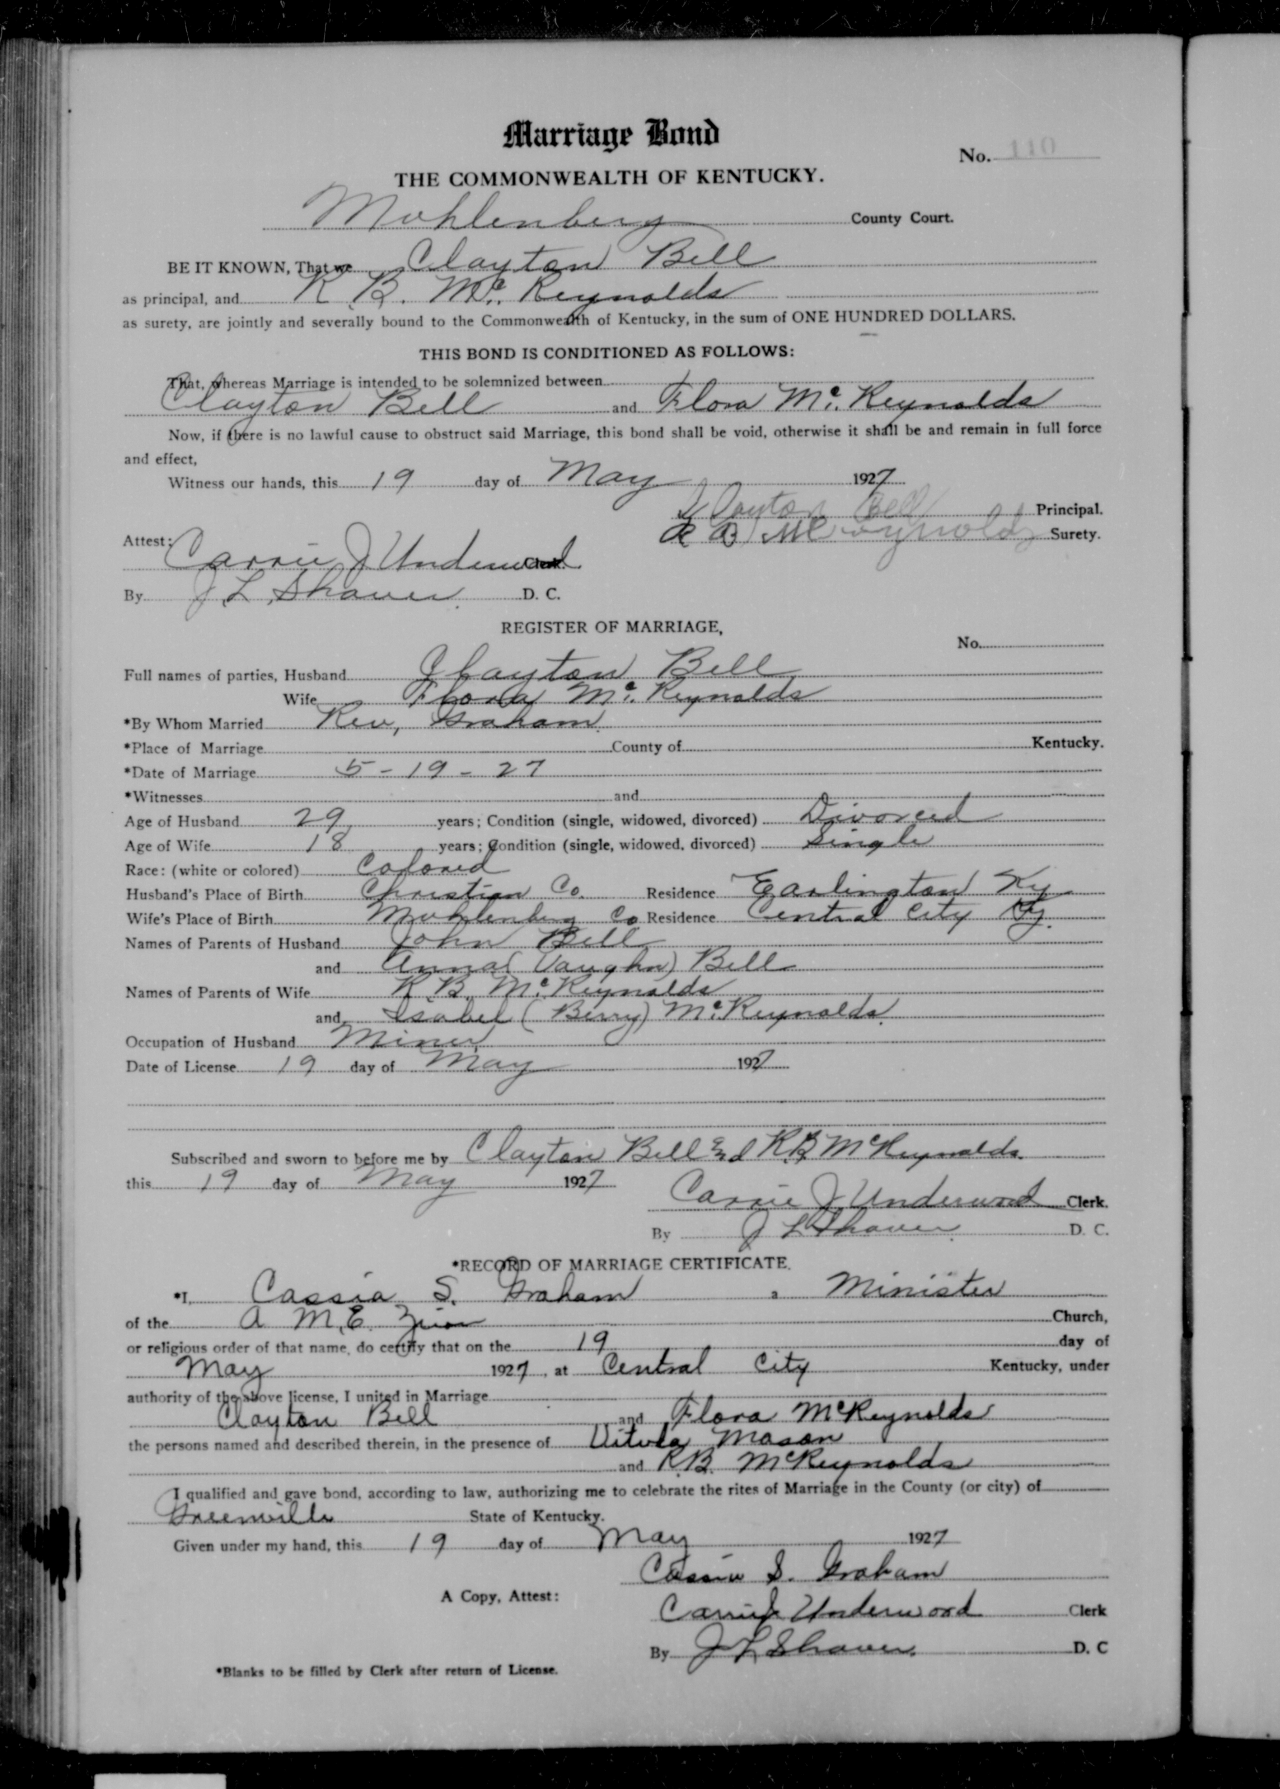 Marriage Bond
No. 110
THE COMMONWEALTH OF KENTUCKY.
Muhlenberg County Court.
BE IT KNOWN, That we Clayton Bell
as principal, and R. B. Mc. Reynolds
as surety, are jointly and severally bound to the Commonwealth of Kentucky, in the sum of ONE HUNDRED DOLLARS.
THIS BOND IS CONDITIONED AS FOLLOWS:
That, whereas Marriage is intended to be solemnized between
Clayton Bell and Flora Mc. Reynolds
Now, if there is no lawful cause to obstruct said Marriage, this bond shall be void, otherwise it shall be and remain in full force
and effect,
Witness our hands, this 19 day of May 1927
Clayton Bell Principal.
R B McReynolds Surety.
Attest: Carrie J Underwood Clerk.
By J. L. Shaver D. C.
REGISTER OF MARRIAGE,
No.
Full names of parties, Husband Clayton Bell
Wife Flora Mc. Reynolds
*By Whom Married Rev, Graham
*Place of Marriage County of Kentucky.
*Date of Marriage 5-19-27
*Witnesses and
Age of Husband 29 years; Condition (single, widowed, divorced) Divorced
Age of Wife 18 years; Condition (single, widowed, divorced) Single
Race: (white or colored) Colored
Husband's Place of Birth Christian Co. Residence Earlington Ky
Wife's Place of Birth Muhlenberg Co Residence Central City Ky.
Names of Parents of Husband John Bell
and Anna (Vaughn) Bell
Names of Parents of Wife R B. Mc. Reynolds
and Isabel (Berry) Mc. Reynolds.
Occupation of Husband Miner
Date of License 19 day of May 1927
Subscribed and sworn to before me by Clayton Bell and R.B McReynolds.
this 19 day of May 1927
Carrie J Underwood Clerk.
By J L Shaver D. C.
*RECORD OF MARRIAGE CERTIFICATE.
*I, Cassia S. Graham a Minister
of the A. M. E. Zion Church,
or religious order of that name, do certify that on the 19 day of
May 1927, at Central City Kentucky, under
authority of the above license, I united in Marriage
Clayton Bell and Flora McReynolds
the persons named and described therein, in the presence of Vitula Mason
and R.B. McReynolds
I qualified and gave bond, according to law, authorizing me to celebrate the rites of Marriage in the County (or city) of
Greenville State of Kentucky.
Given under my hand, this 19 day of May 1927
Cassia S. Graham
A Copy, Attest: Carrie J Underwood Clerk
By J L Shaver. D. C
*Blanks to be filled by Clerk after return of License.